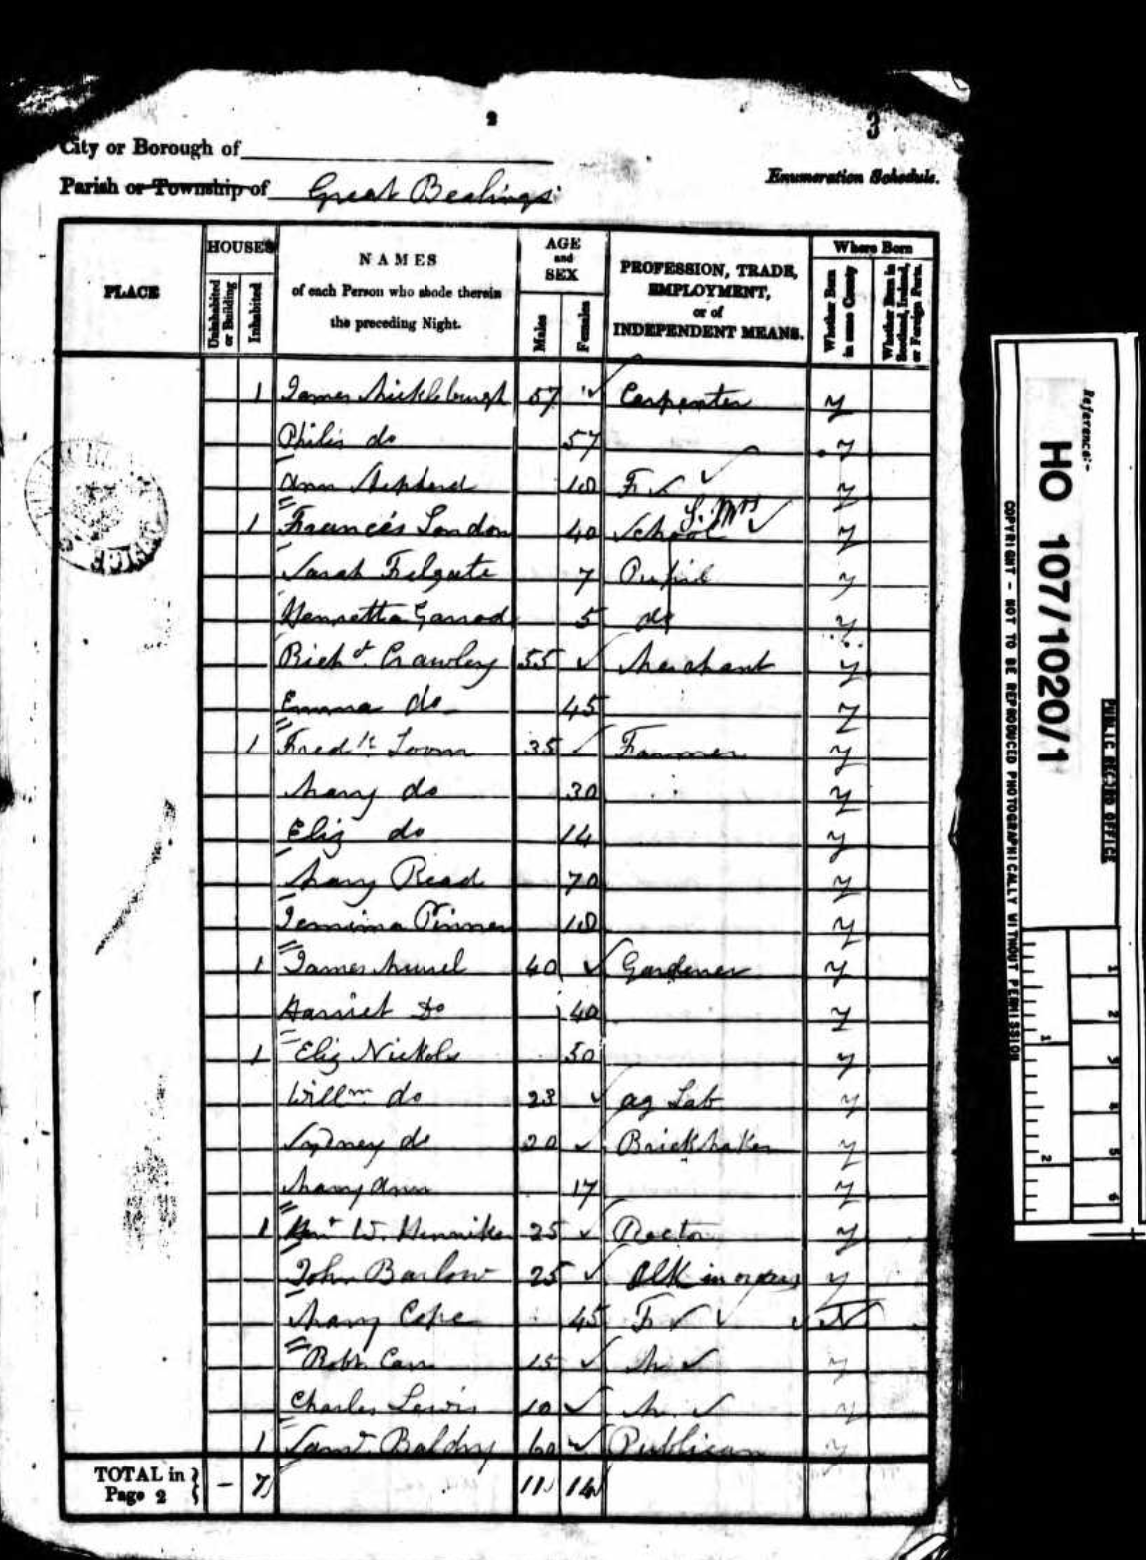 2
3
City or Borough of
Enumeration Schedule.
Parish or Township of Great Bealings
PLACE
HOUSES
Uninhabited or Building
Inhabited
NAMES
of each Person who abode therein
the preceding Night.
AGE
and
SEX
Males
Females
PROFESSION, TRADE,
EMPLOYMENT,
or of
INDEPENDENT MEANS.
Where Born
Whether Born in same County
Whether Born in Scotland, Ireland, or Foreign Parts.
1 James Mickleburgh 57 Carpenter y
Philis do 57 y
Ann Shepherd 10 F S y
1 Frances London 40 School Mrs y
Sarah Felgate 7 Pupil y
Henretta Garrod 5 do y
Richd. Crawley 55 Merchant y
Emma do 45 y
1 Fredk 35 Farmer y
Mary do 30 y
Eliz do 14 y
Mary Read 70 y
Jemima Pinner 10 y
1 James 40 Gardener y
Harriet Do 40 y
1 Eliz Nickols 50 y
Willm do 23 ag Lab y
Sydney do 20 Brickmaker y
Mary Ann 17 y
1 W. Henniker 25 Rector y
John Barlow 25 in orders y
Mary Cope 45 F S N
Robt. Carr 15 M S y
Charles Lewis 10 M S y
1 Saml. Baldry 60 Publican y
TOTAL in Page 2 - 7 11 14
Reference:-
HO 107/1020/1
PUBLIC RECORD OFFICE
COPYRIGHT - NOT TO BE REPRODUCED PHOTOGRAPHICALLY WITHOUT PERMISSION
1 2 3 4 5 6
1 2